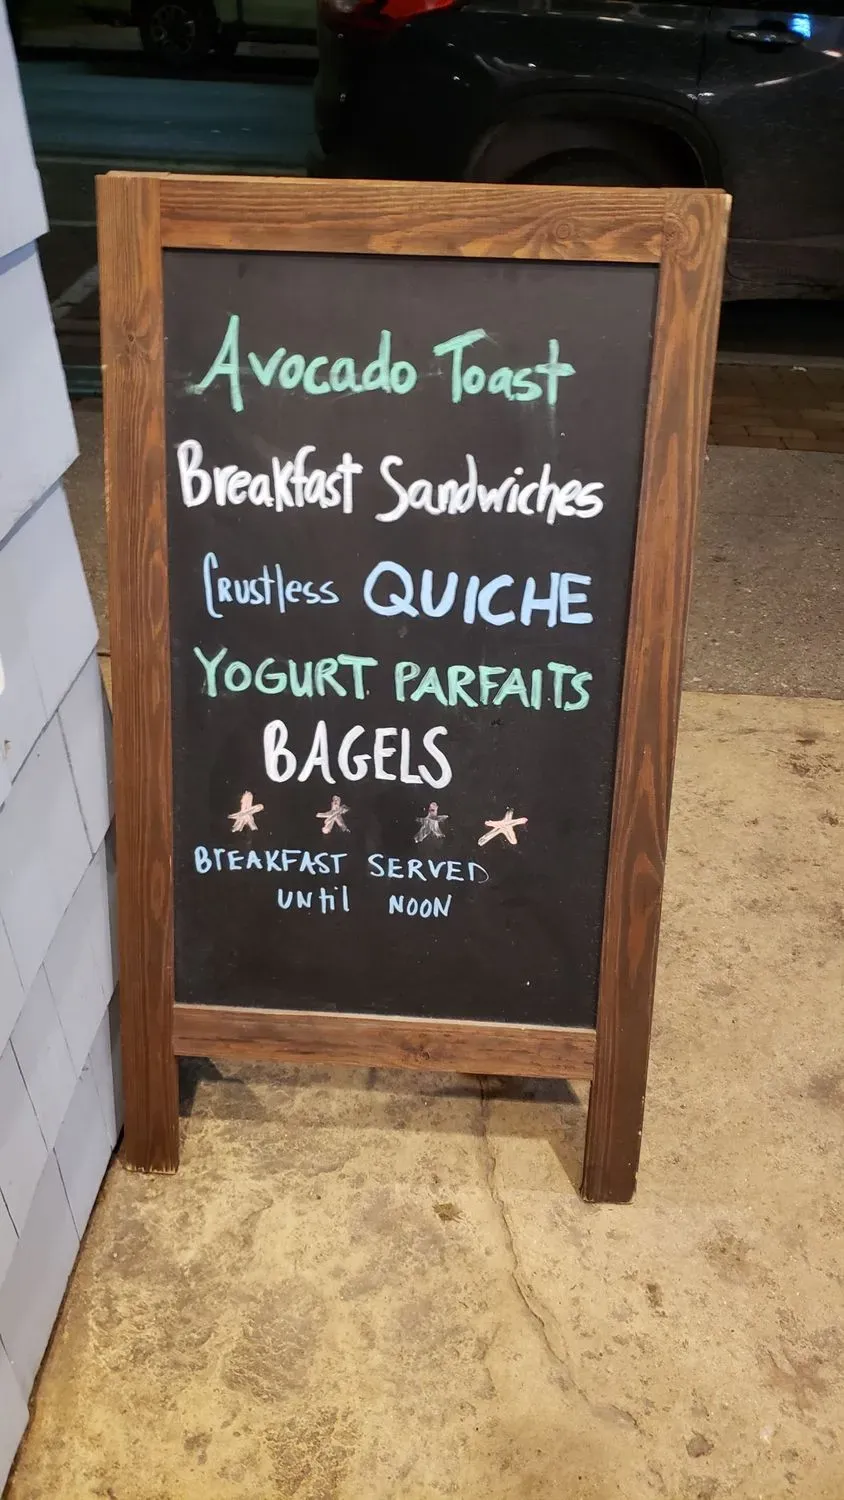 Avocado Toast
Breakfast Sandwiches
Crustless QUICHE
YOGURT PARFAITS
BAGELS
BREAKFAST SERVED
UNtil NOON